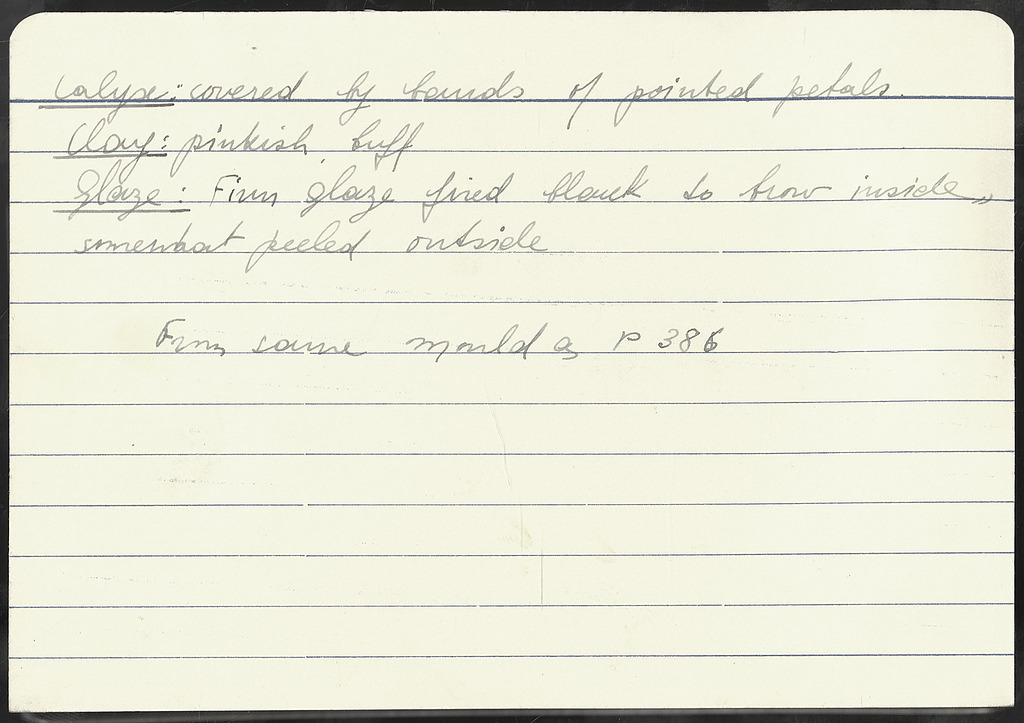 Calyx: covered by bands of pointed petals.
Clay: pinkish buff
Glaze: Firm glaze fired black to brow inside,,
somewhat peeled outside
From same mould as P 386